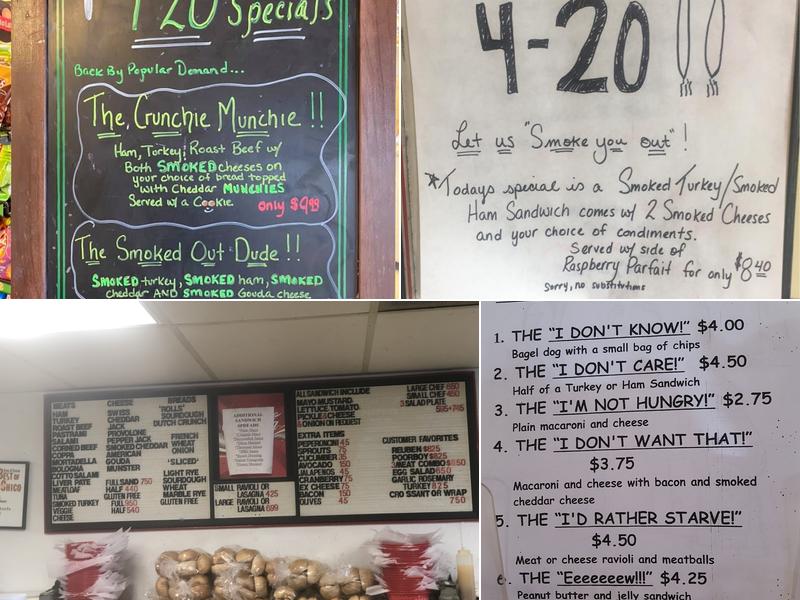 420 Specials
Back By Popular Demand...
The Crunchie Munchie !!
Ham, Turkey, Roast Beef w/
Both SMOKED cheeses on
your choice of bread topped
with Cheddar MUNCHIES
Served w/ a Cookie. only $9.99
The Smoked Out Dude !!
SMOKED turkey, SMOKED ham, SMOKED
cheddar AND SMOKED Gouda cheese
4-20
Let us "Smoke you out"!
*Todays special is a Smoked Turkey/Smoked
Ham Sandwich comes w/ 2 Smoked Cheeses
and your choice of condiments.
Served w/ side of
Raspberry Parfait for only $8.40
Sorry, no substitutions
MEATS
HAM
TURKEY
ROAST BEEF
PASTRAMI
SALAMI
CORNED BEEF
COPPA
MORTADELLA
BOLOGNA
COTTO SALAMI
LIVER PATE
MEATLOAF
TUNA
SMOKED TURKEY
VEGGIE
CHEESE
CHEESE
SWISS
CHEDDAR
JACK
PROVOLONE
PEPPER JACK
SMOKED CHEDDAR
AMERICAN
GOUDA
MUNSTER
FULL SAND 750
HALF 440
GLUTEN FREE
FULL 950
HALF 540
BREADS
"ROLLS"
SOURDOUGH
DUTCH CRUNCH
FRENCH
WHEAT
ONION
"SLICED"
LIGHT RYE
SOURDOUGH
WHEAT
MARBLE RYE
GLUTEN FREE
ADDITIONAL
SANDWICH
SPREADS
SMALL RAVIOLI OR
LASAGNA 425
LARGE RAVIOLI OR
LASAGNA 699
ALL SANDWICH INCLUDE
MAYO MUSTARD
LETTUCE TOMATO
PICKLE & CHEESE
ONION ON REQUEST
EXTRA ITEMS
PEPERONCINI 45
SPROUTS 75
CUCUMBER 35
AVOCADO 150
JALAPENOS 45
CRANBERRY 75
EX CHEESE 75
BACON 150
OLIVES 45
LARGE CHEF 650
SMALL CHEF 450
SALAD PLATE
CUSTOMER FAVORITES
REUBEN $825
POORBOY $825
3 MEAT COMBO $850
EGG SALAD 650
GARLIC ROSEMARY
TURKEY 825
CROSSANT OR WRAP
750
1. THE "I DON'T KNOW!" $4.00
Bagel dog with a small bag of chips
2. THE "I DON'T CARE!" $4.50
Half of a Turkey or Ham Sandwich
3. THE "I'M NOT HUNGRY!" $2.75
Plain macaroni and cheese
4. THE "I DON'T WANT THAT!"
$3.75
Macaroni and cheese with bacon and smoked
cheddar cheese
5. THE "I'D RATHER STARVE!"
$4.50
Meat or cheese ravioli and meatballs
6. THE "Eeeeeeew!!!" $4.25
Peanut butter and jelly sandwich